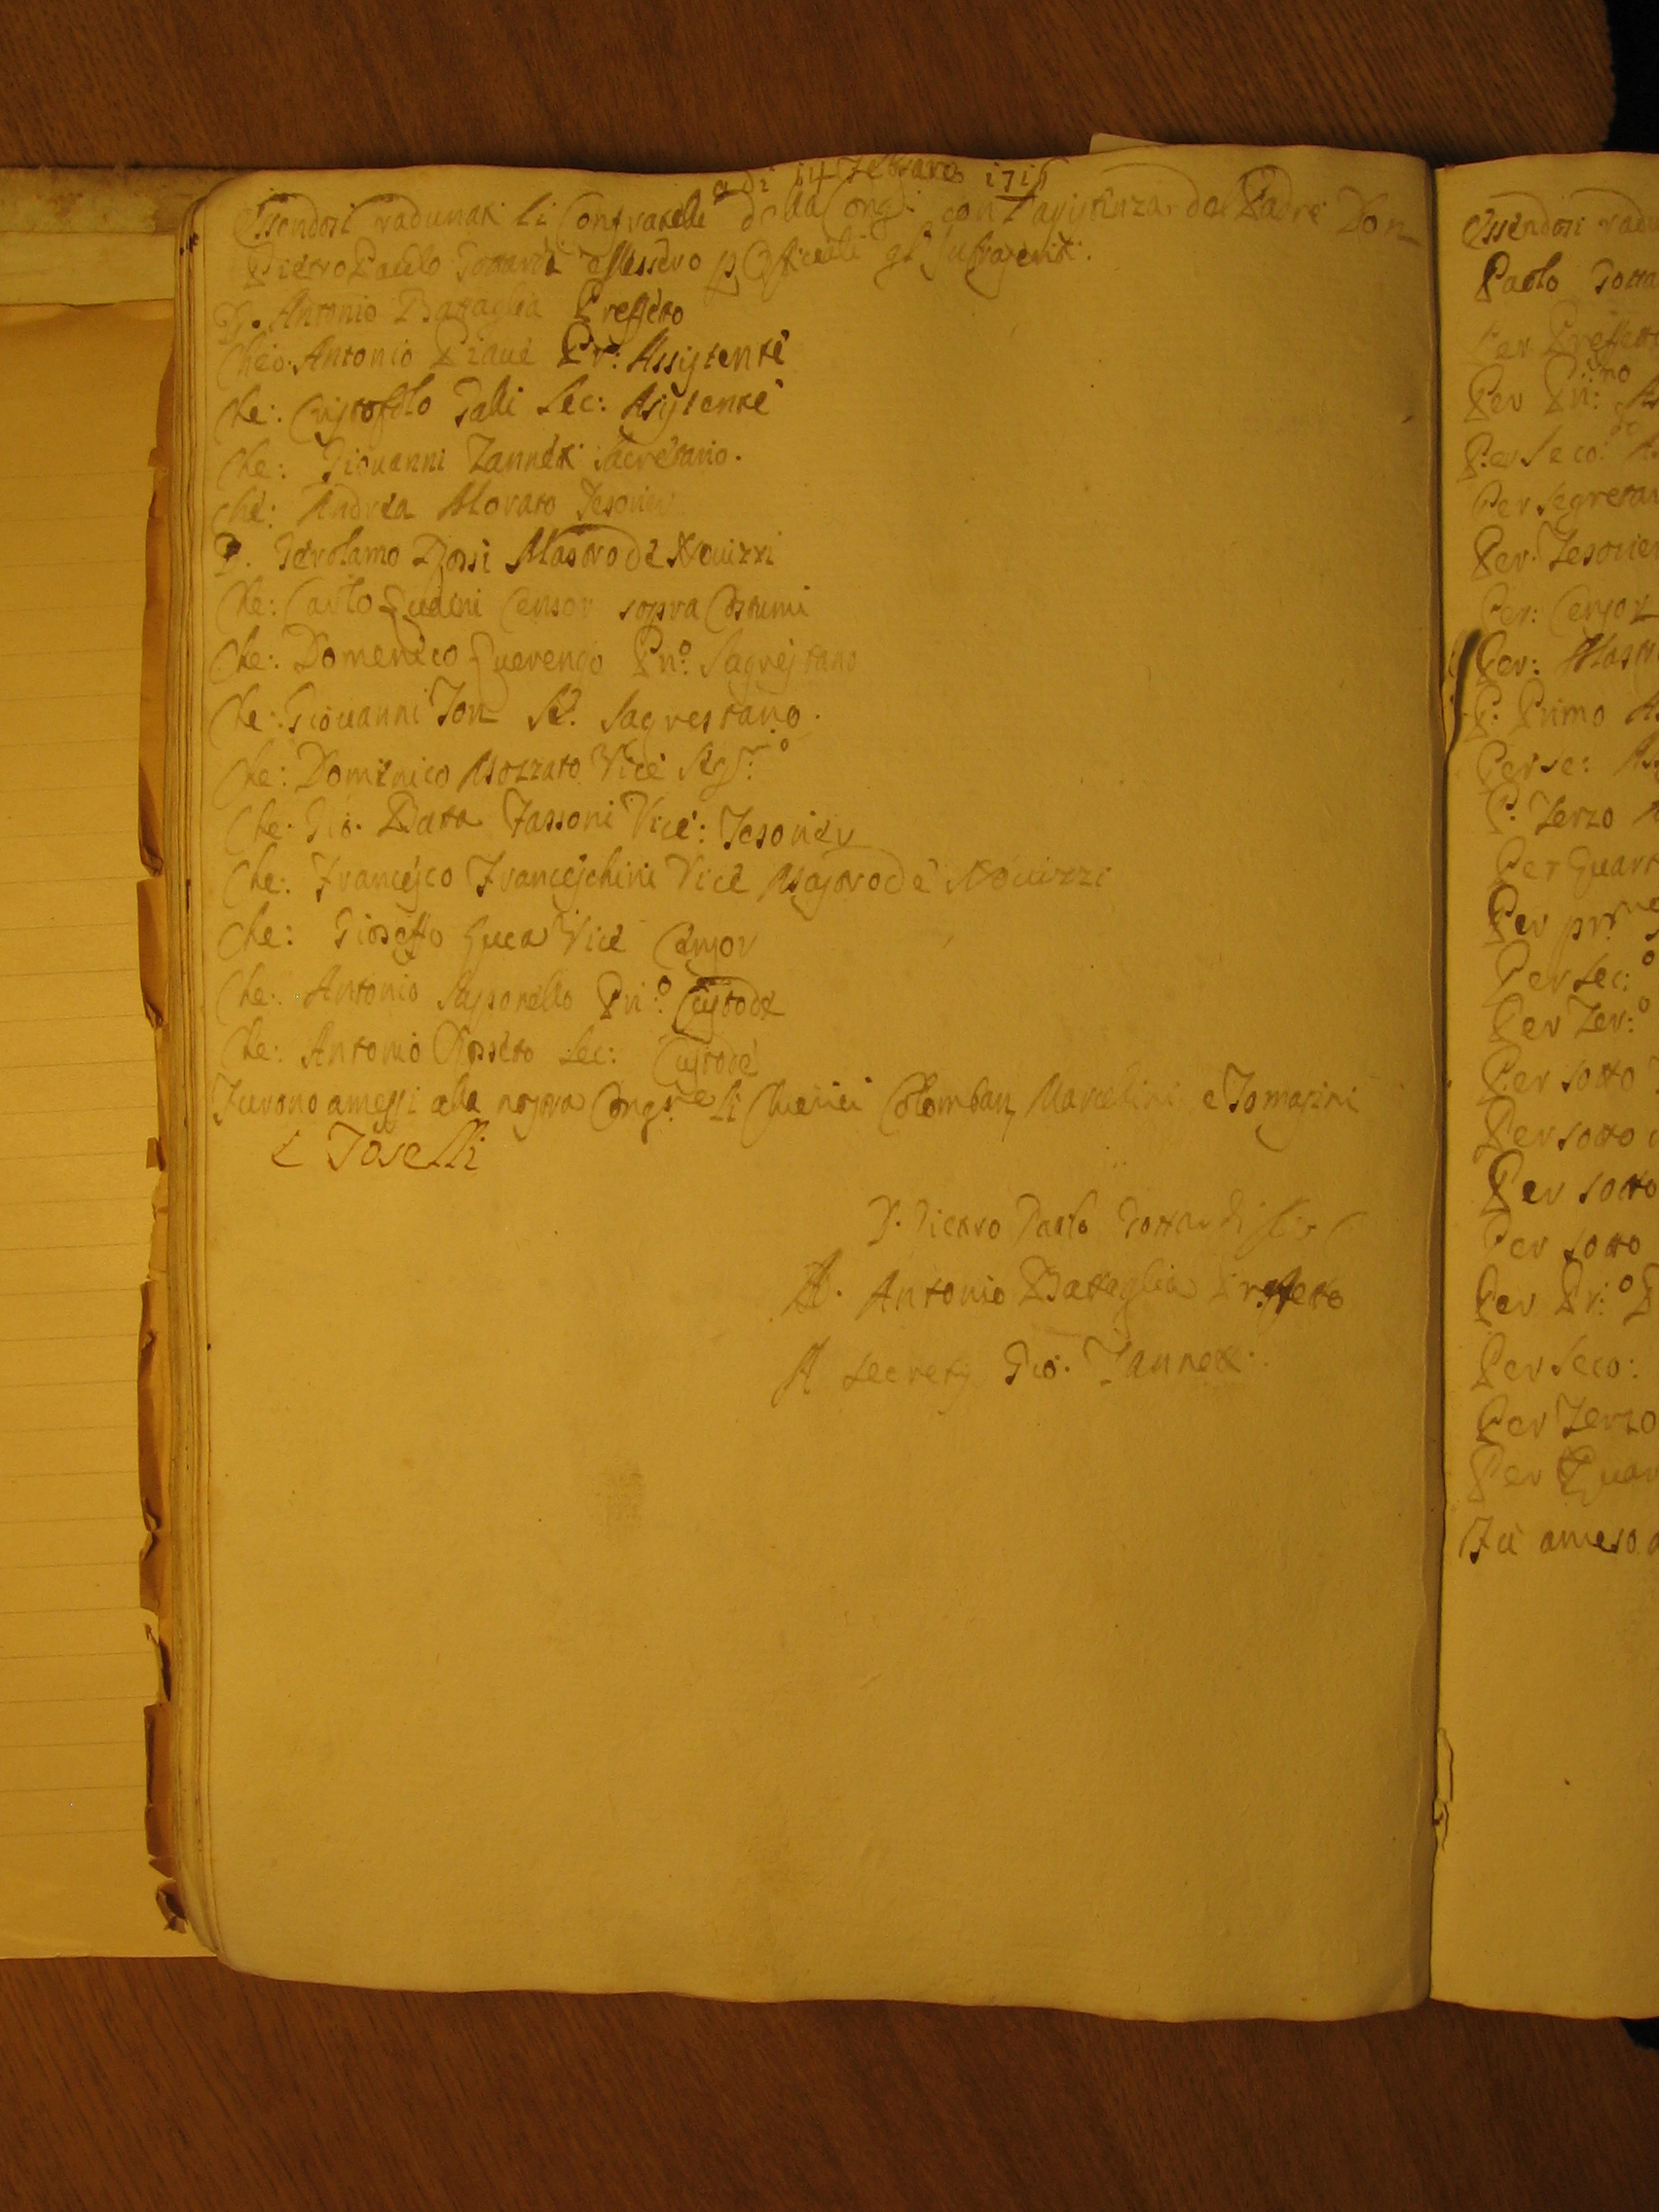 adi 14 Febraro 1716
Essendosi radunati li Confratelli della Congr: con l'asistenza del Padre Don
Pietro Paulo Gottardi ellessero p Officiali gl' Infrascriti:
D. Antonio Battaglia Preffeto
Che: Antonio Piave Pr: Assistente
Che: Cristofolo Galli Sec: Asistente
Che: Giovanni Zanneti Sacretario.
Che: Andrea Morato Tesorier
D. Gerolamo Dossi Mastro de Novizzi
Che: Carlo Zudini Censor sopra Costumi
Che: Domenico Querengo Prio: Sagrestano
Che: Giovanni Ton Se: Sagrestano.
Che: Dominico Mozzato Vice Sego:
Che: Gio: Batta Fassoni Vice: Tesorier
Che: Francesco Franceschini Vice Mastro de Novizzi
Che: Gioseffo Zuca Vice Censor
Che: Antonio Saponello Prio: Custode
Che: Antonio Rosseto Sec: Custode
Furono amessi alla nostra Congrne li Chierici Colomban, Marcelini, e Tomasini
e Toselli
D. Pietro Paulo Gottardi
D. Antonio Battaglia Preffetto
Secrety Gio: Zanneti.
Essendosi radu
Paolo Gotta
Per Preffetto
Per Primo: As
Per Seco: As
Per Segretar
Per Tesorier
Per: Censor
Per: Mastro
P: Primo As
Per se: As
P: Terzo
Per Quart
Per pr
Per Sec:o
Per Ter:o
Per sotto
Per sotto
Per sotto
Per sotto
Per Pr:o
Per Seco:
Per Terzo
Per Quar
Fu ameso